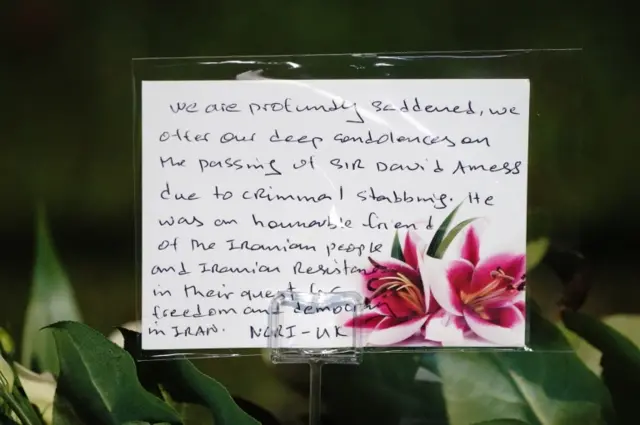 We are profundy saddened, we
offer our deep condolences on
the passing of SIR David Amess
due to criminal stabbing. He
was an hounarable friend
of the Iranian people
and Iranian Resistan
in their quest for
freedom and democr
in IRAN. NCRI-UK